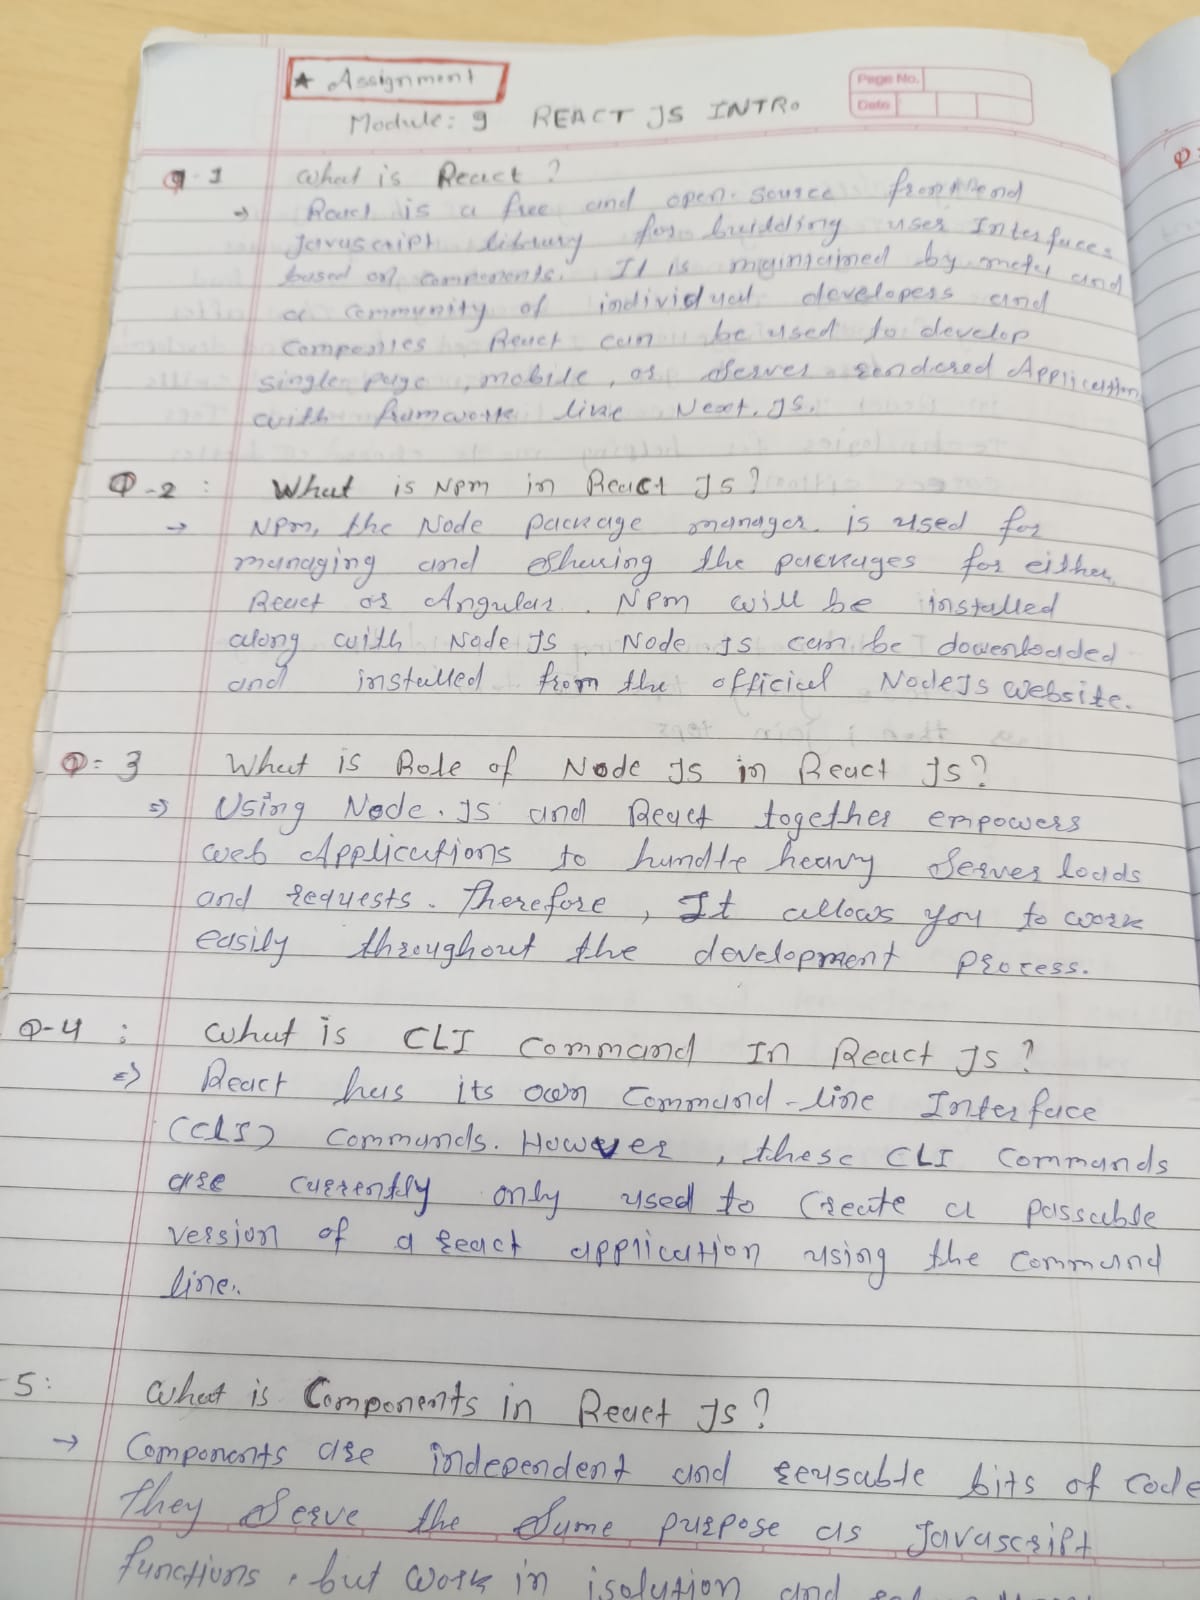 ★ Assignment
Page No.
Date
Module: 9 REACT JS INTRO
Q-1 What is React ?
→ React is a free and open-source frontend
Javascript library for building user Interfaces
based on components. It is maintained by meta and
a community of individual developers and
companies React can be used to develop
single page, mobile, or server-rendered Application
with framwork like Next.JS.
Q-2 : What is Npm in React JS ?
→ NPm, the Node package manager. is used for
managing and sharing the packages for either
React or Angular. NPm will be installed
along with Node JS. Node JS can be downloaded
and installed from the official NodeJs website.
Q-3 What is Role of Node Js in React JS ?
⇒ Using Node.JS and React together empowers
web Applications to handle heavy server loads
and requests. Therefore, It allows you to work
easily throughout the development process.
Q-4 : What is CLI Command In React Js ?
⇒ React has its own Command-line Interface
(CLI) commands. However, these CLI commands
are currently only used to create a passable
version of a react application using the command
line.
-5: What is Components in React Js ?
→ Components are independent and reusable bits of code
They serve the same purpose as Javascript
functions, but work in isolation and